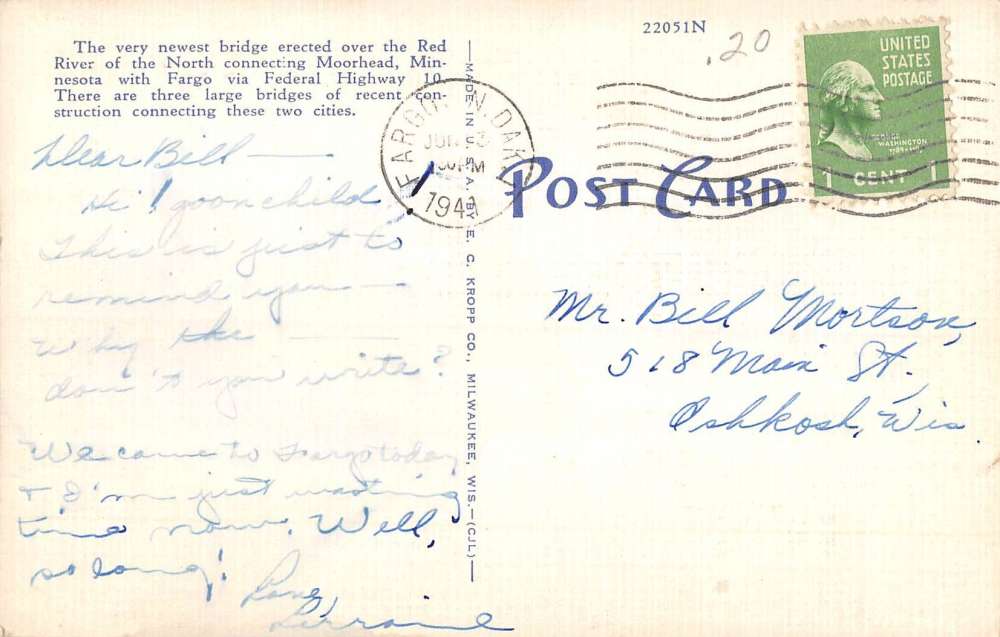 The very newest bridge erected over the Red
River of the North connecting Moorhead, Min-
nesota with Fargo via Federal Highway 10.
There are three large bridges of recent con-
struction connecting these two cities.
Dear Bill —
Hi! goon child
This is just to
remind you —
Why the ——
don't you write?
We came to Fargo today
+ I'm just wasting
time now. Well,
so long!
Love,
Lorraine
MADE IN U. S. A. BY E. C. KROPP CO., MILWAUKEE, WIS.—(CJL)
22051N
.20
FARGO, N. DAK.
JUN
PM
UNITED
STATES
POSTAGE
GEORGE
WASHINGTON
1789-1797
1 CENT 1
POST CARD
Mr. Bill Mortson,
518 Main St.,
Oshkosh, Wis.